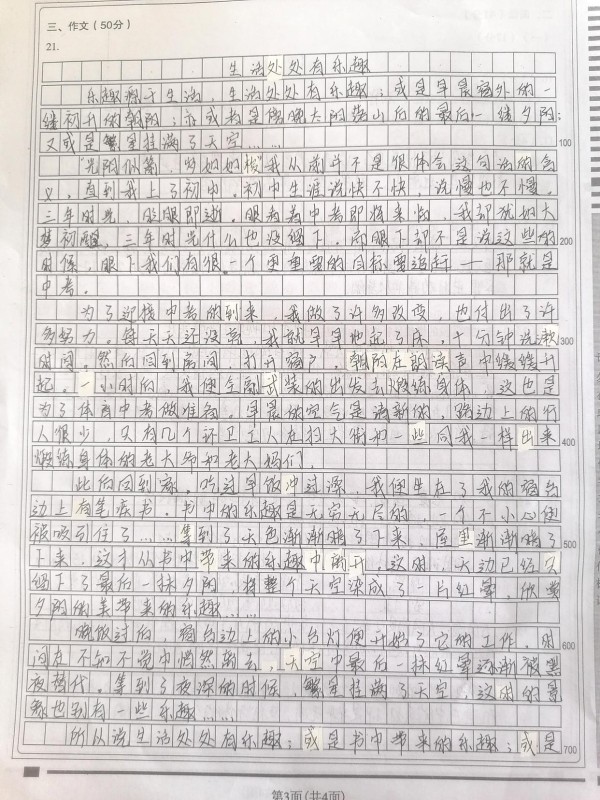 三、作文（50分）
21.
生活处处有乐趣
乐趣源于生活，生活处处有乐趣；或是早晨窗外的一
缕初升的朝阳；亦或者是傍晚太阳落山后的最后一缕夕阳；
又或是繁星挂满了天空……
100
"光阴似箭，岁月如梭"我从前并不是很体会这句话的含
义，直到我上了初中。初中生涯说快不快，说慢也不慢。
三年时光，眨眼即逝。眼看着中考即将来临，我却犹如大
梦初醒，三年时光什么也没留下。而眼下却不是说这些的
200
时候，眼下我们有很一个更重要的目标要追赶——那就是
中考。
为了迎接中考的到来，我做了许多改变，也付出了许
多努力。每天天还没亮，我就早早地起了床，十分钟洗漱
300
时间。然后回到房间，打开窗户，朝阳在朗读声中缓缓升
起。一小时后，我便全副武装的出发去锻炼身体，这也是
为了体育中考做准备。早晨的空气是清新的，路边上的行
人很少，只有几个环卫工人在扫大街和一些同我一样出来
400
煅练身体的老大爷和老大妈们。
此后回到家。吃过早饭冲过澡，我便坐在了我的窗台
边上看笔读书。书中的乐趣是无穷无尽的，一个不小心便
被吸引住了……等到了天色渐渐暗了下来，屋里渐渐暗了
500
下来，这才从书中带来的乐趣中离开，这时，天边已经只
留下了最后一抹夕阳，将整个天空染成了一片红晕，欣赏
夕阳的美带来的乐趣……
晚饭过后，窗台边上的小台灯便开始了它的工作，时
600
间在不知不觉中悄然离去，天空中最后一抹红晕逐渐被黑
夜替代。等到了夜深的时候，繁星挂满了天空，这时的景
致也别有一些乐趣……
所以说生活处处有乐趣；或是书中带来的乐趣；或是
700
第3页(共4页)